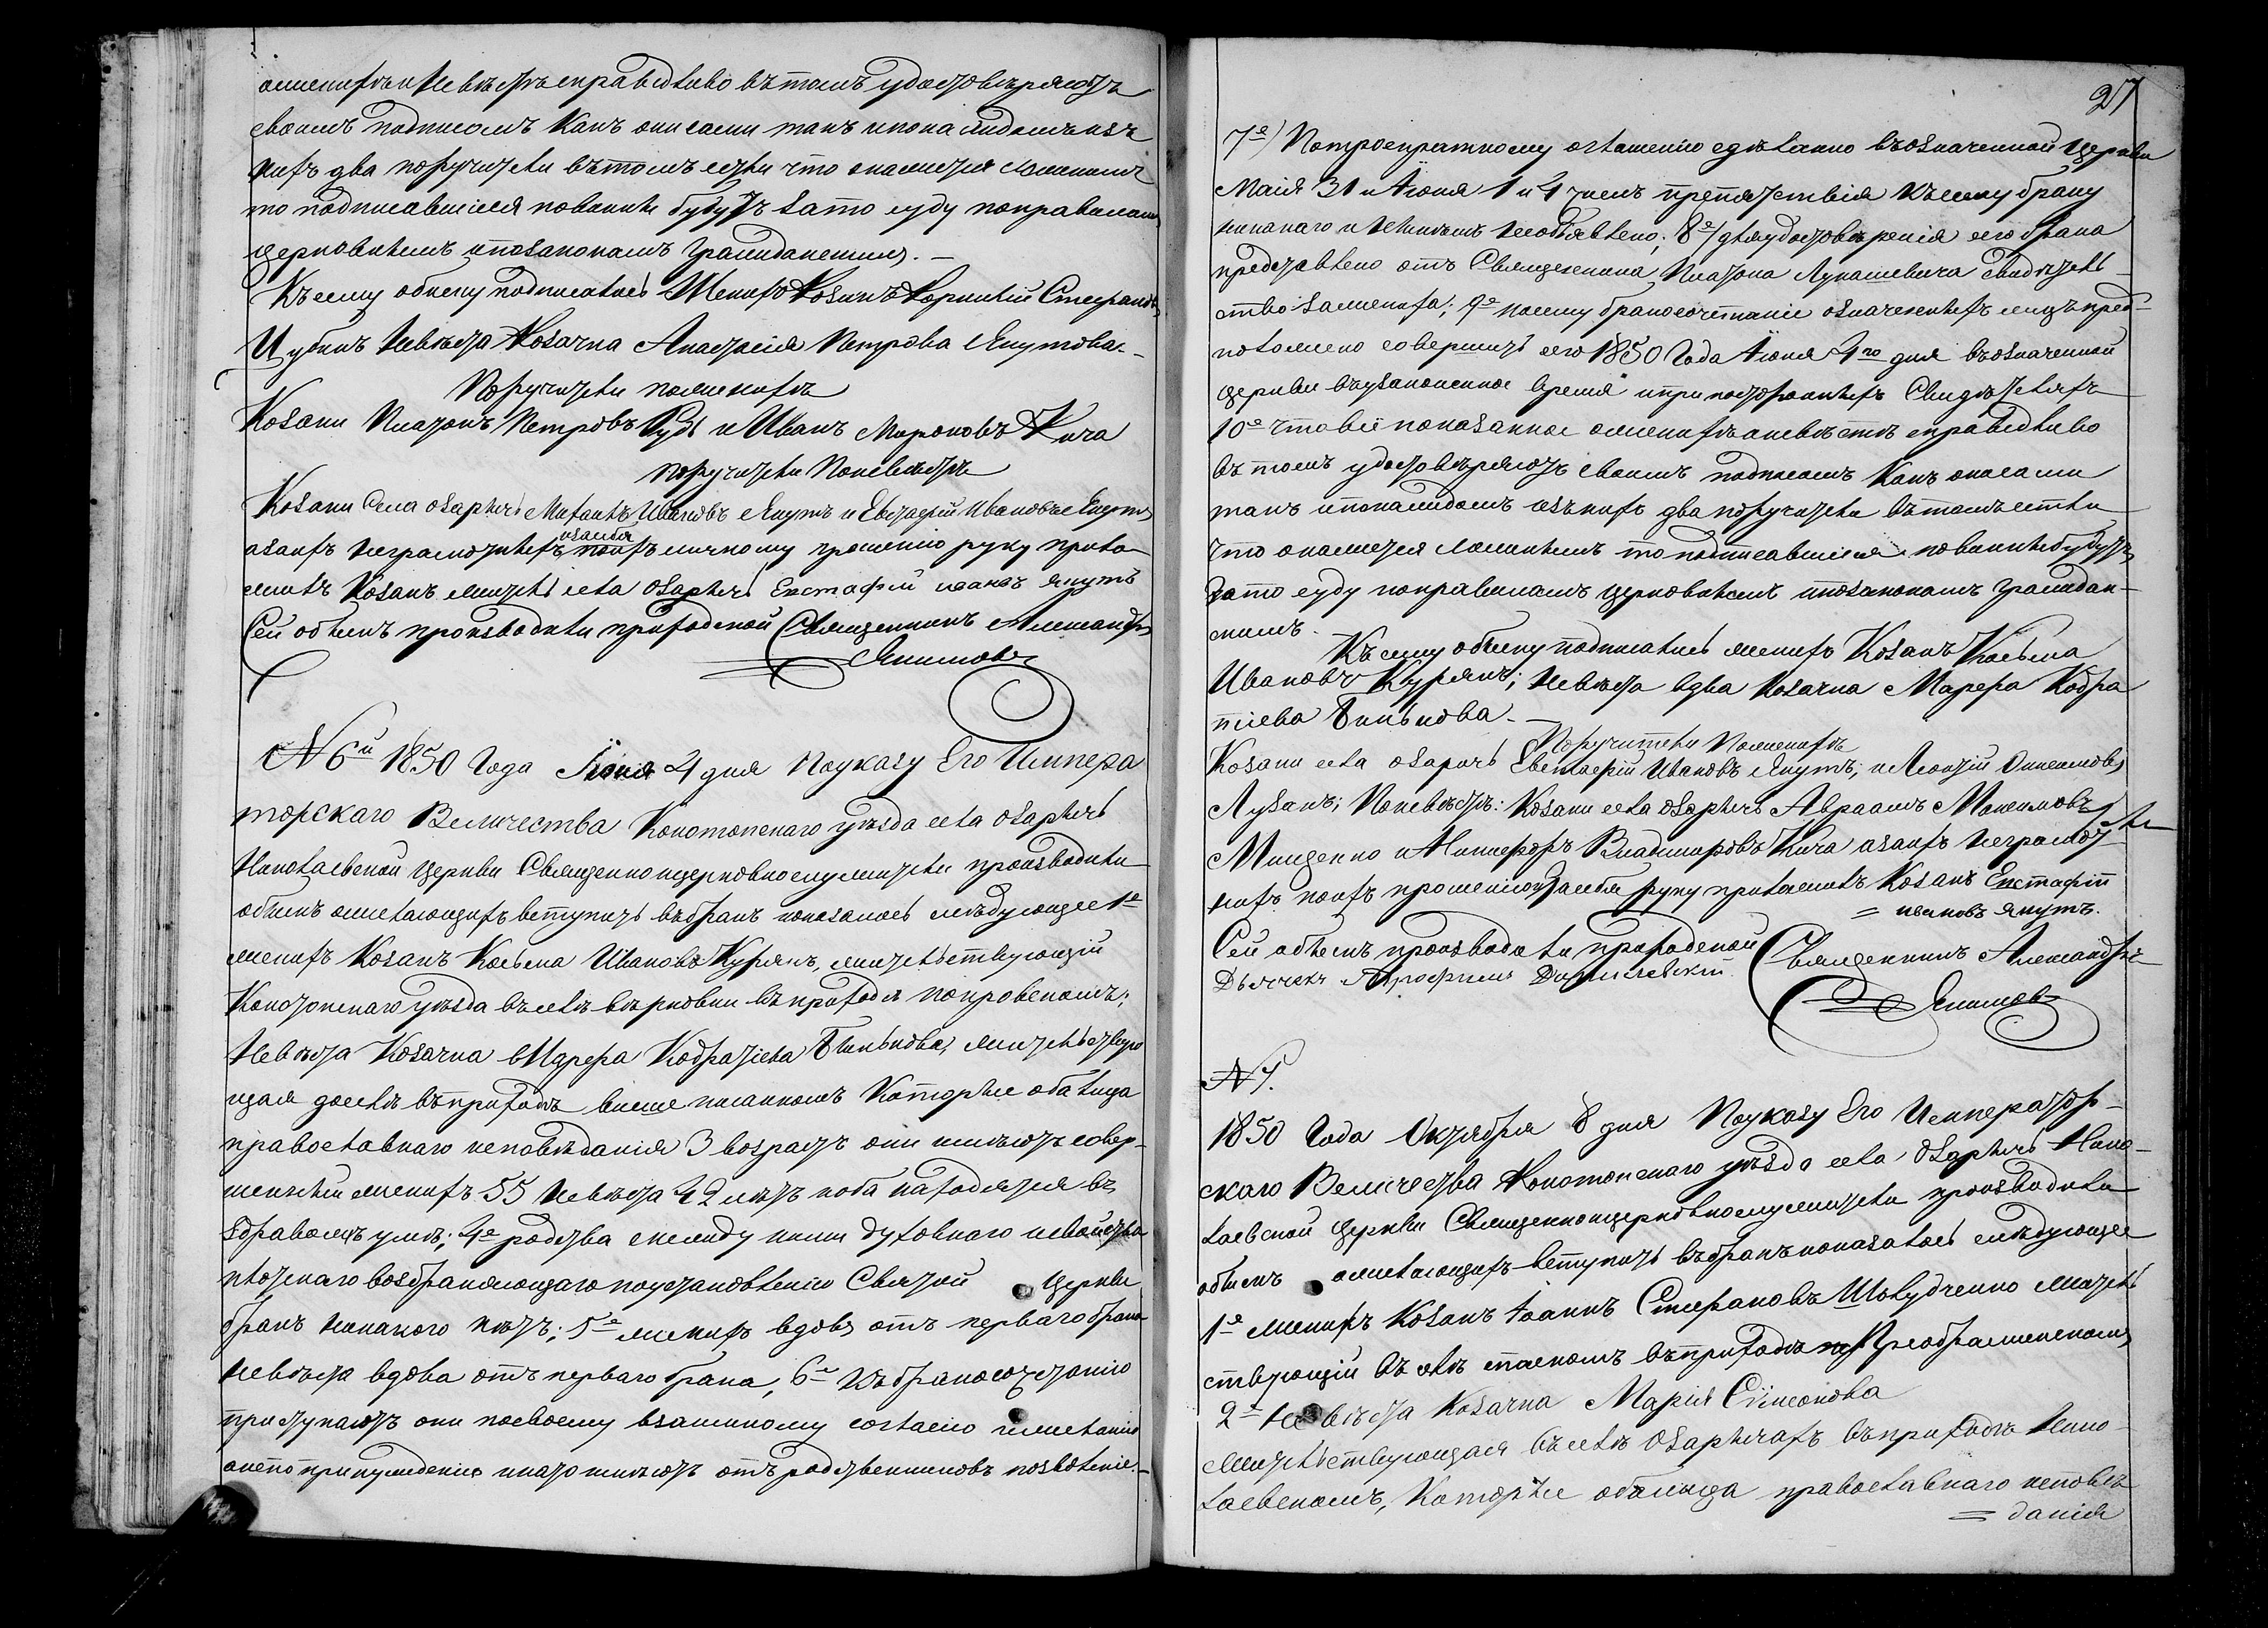 оженихѣ и Невѣстѣ справедливо вътомъ удостовѣряютъ
своимъ подписомъ Какъ они сами такъ ипонаиидомъ изъ
нихъ два поручители вътомъ естли что окажется ложнымъ
то подписавшіеся повинны будутъ зато суду поправиламъ
церковнымъ ипозаконамъ Гражданскимъ. —
Къ сему обыску подписались Женихъ Козакъ Корнилій Стефановъ
Цубинъ Невѣста Козачка Анастасія Петрова Якутова. —
Поручители поженихѣ
Козаки Платонъ Петровъ Рудь и Иванъ Мироновъ Кича
поручители Поневѣстѣ
Козаки Села Озаричъ Ивановъ Якутъ и Евстафій Ивановъ Якутъ
азанхъ Неграмотныхъ поихъ изасебя личному прошенію руку прило
жилъ Козакъ житель села Озаричъ Евстафій ивановъ якутъ
Сей обыскъ производили приходской Священникъ Александръ
Якимовъ
N 6й 1850 Года Іюня 4 дня Поуказу Его Импера
торскаго Величества Конотопскаго уѣзда села Озаричъ
Николаевской Церкви Священноицерковнослужители производили
обыскъ ожелающихъ вступить въбракъ иоказалось слѣдующее 1е
женихъ Козакъ Косьма Ивановъ Курякъ, жительствующій
Конотопскаго уѣзда въселѣ вѣровки въприходѣ покровскомъ;
Невѣста Козачка Марфа Кодратіева Бинькова, жительствую
щая въприходѣ выше писанномъ Которые оба лица
православнаго исповѣданія 3 возрастъ они имѣютъ совер-
шенный женихъ 55 Невѣста 42 лѣтъ иоба находятся въ
здравомъ умѣ; 4е родства между ними духовнаго исвойства
плотскаго возбраняющаго поустановленію Святой Церкви
бракъ никакого нѣтъ; 5е женихъ вдовъ отъ перваго брака
невѣста вдова отъ перваго брака, 6е Къбракосочетанію
приступаютъ они посвоему взаимному согласію ижеланію
анепо принужденію инато имѣютъ отъ родственниковъ позволеніе. —
27
7е) Потроекратному оглашенію сдѣланно въозначенной Церкви
Маія 31 и Іюня 1 и 4 чиселъ препятствія къ сему браку
никакаго и никѣмъ необъявлено; 8е/ дляудостовѣренія сего брака
представлено отъ Священника Платона Лукашевича свидѣтель-
ство заженихѣ; 9е посему бракосочетаніе означенныхъ лицъ пред-
положено совершить сего 1850 Года Іюня 4го дня въозначенной
церкви въузаконенное время ипри постороннихъ Свидѣтеляхъ
10е чтовсё показанное оженихѣ иневѣстѣ справедливо
въ томъ удостовѣряютъ своимъ подписомъ Какъ онисами
такъ ипонаиидомъ изънихъ два поручители вътомъ естли
что окажется ложнымъ то подписавшіеся повинныбудутъ
зато суду поправиламъ церковнымъ ипозаконамъ Граждан-
скимъ.
Къ сему обыску подписались женихъ Козакъ Косьма
Ивановъ Курякъ; невѣста вдова Козачка Марфа Кодра
тіева Бинькова. —
Поручители Поженихѣ
Козаки села Озаричъ Евстафій Ивановъ Якутъ; и Леонтій
Лузанъ; Поневѣстѣ: Козаки села Озаричъ Авраамъ Максимовъ
Мищенко и Никифоръ Владимировъ Кича азаихъ Неграмот
ныхъ поихъ прошенію изасебя руку приложилъ Козакъ Евстафій
= ивановъ якутъ.
Сей обыскъ производили приходской Священникъ Александръ
Дьячокъ
Якимовъ
N 7.
1850 Года Октября 8 дня Поуказу Его Император-
скаго Величества Конотопскаго уѣзда села Озаричъ Нико-
лаевской Церкви Священноицерковнослужители производили
обыскъ ожелающихъ вступить въбракъ иоказалось слѣдующее
1е женихъ Козакъ Іоаннъ Стефановъ Шолудченко житель
ствующій въ селѣ въприходѣ Преображенскомъ
2е Невѣста Козачка Марія Симеонова
жительствующая въселѣ Озаричахъ въприходѣ Нико-
лаевскомъ, Которые обалица православнаго исповѣ
= данія